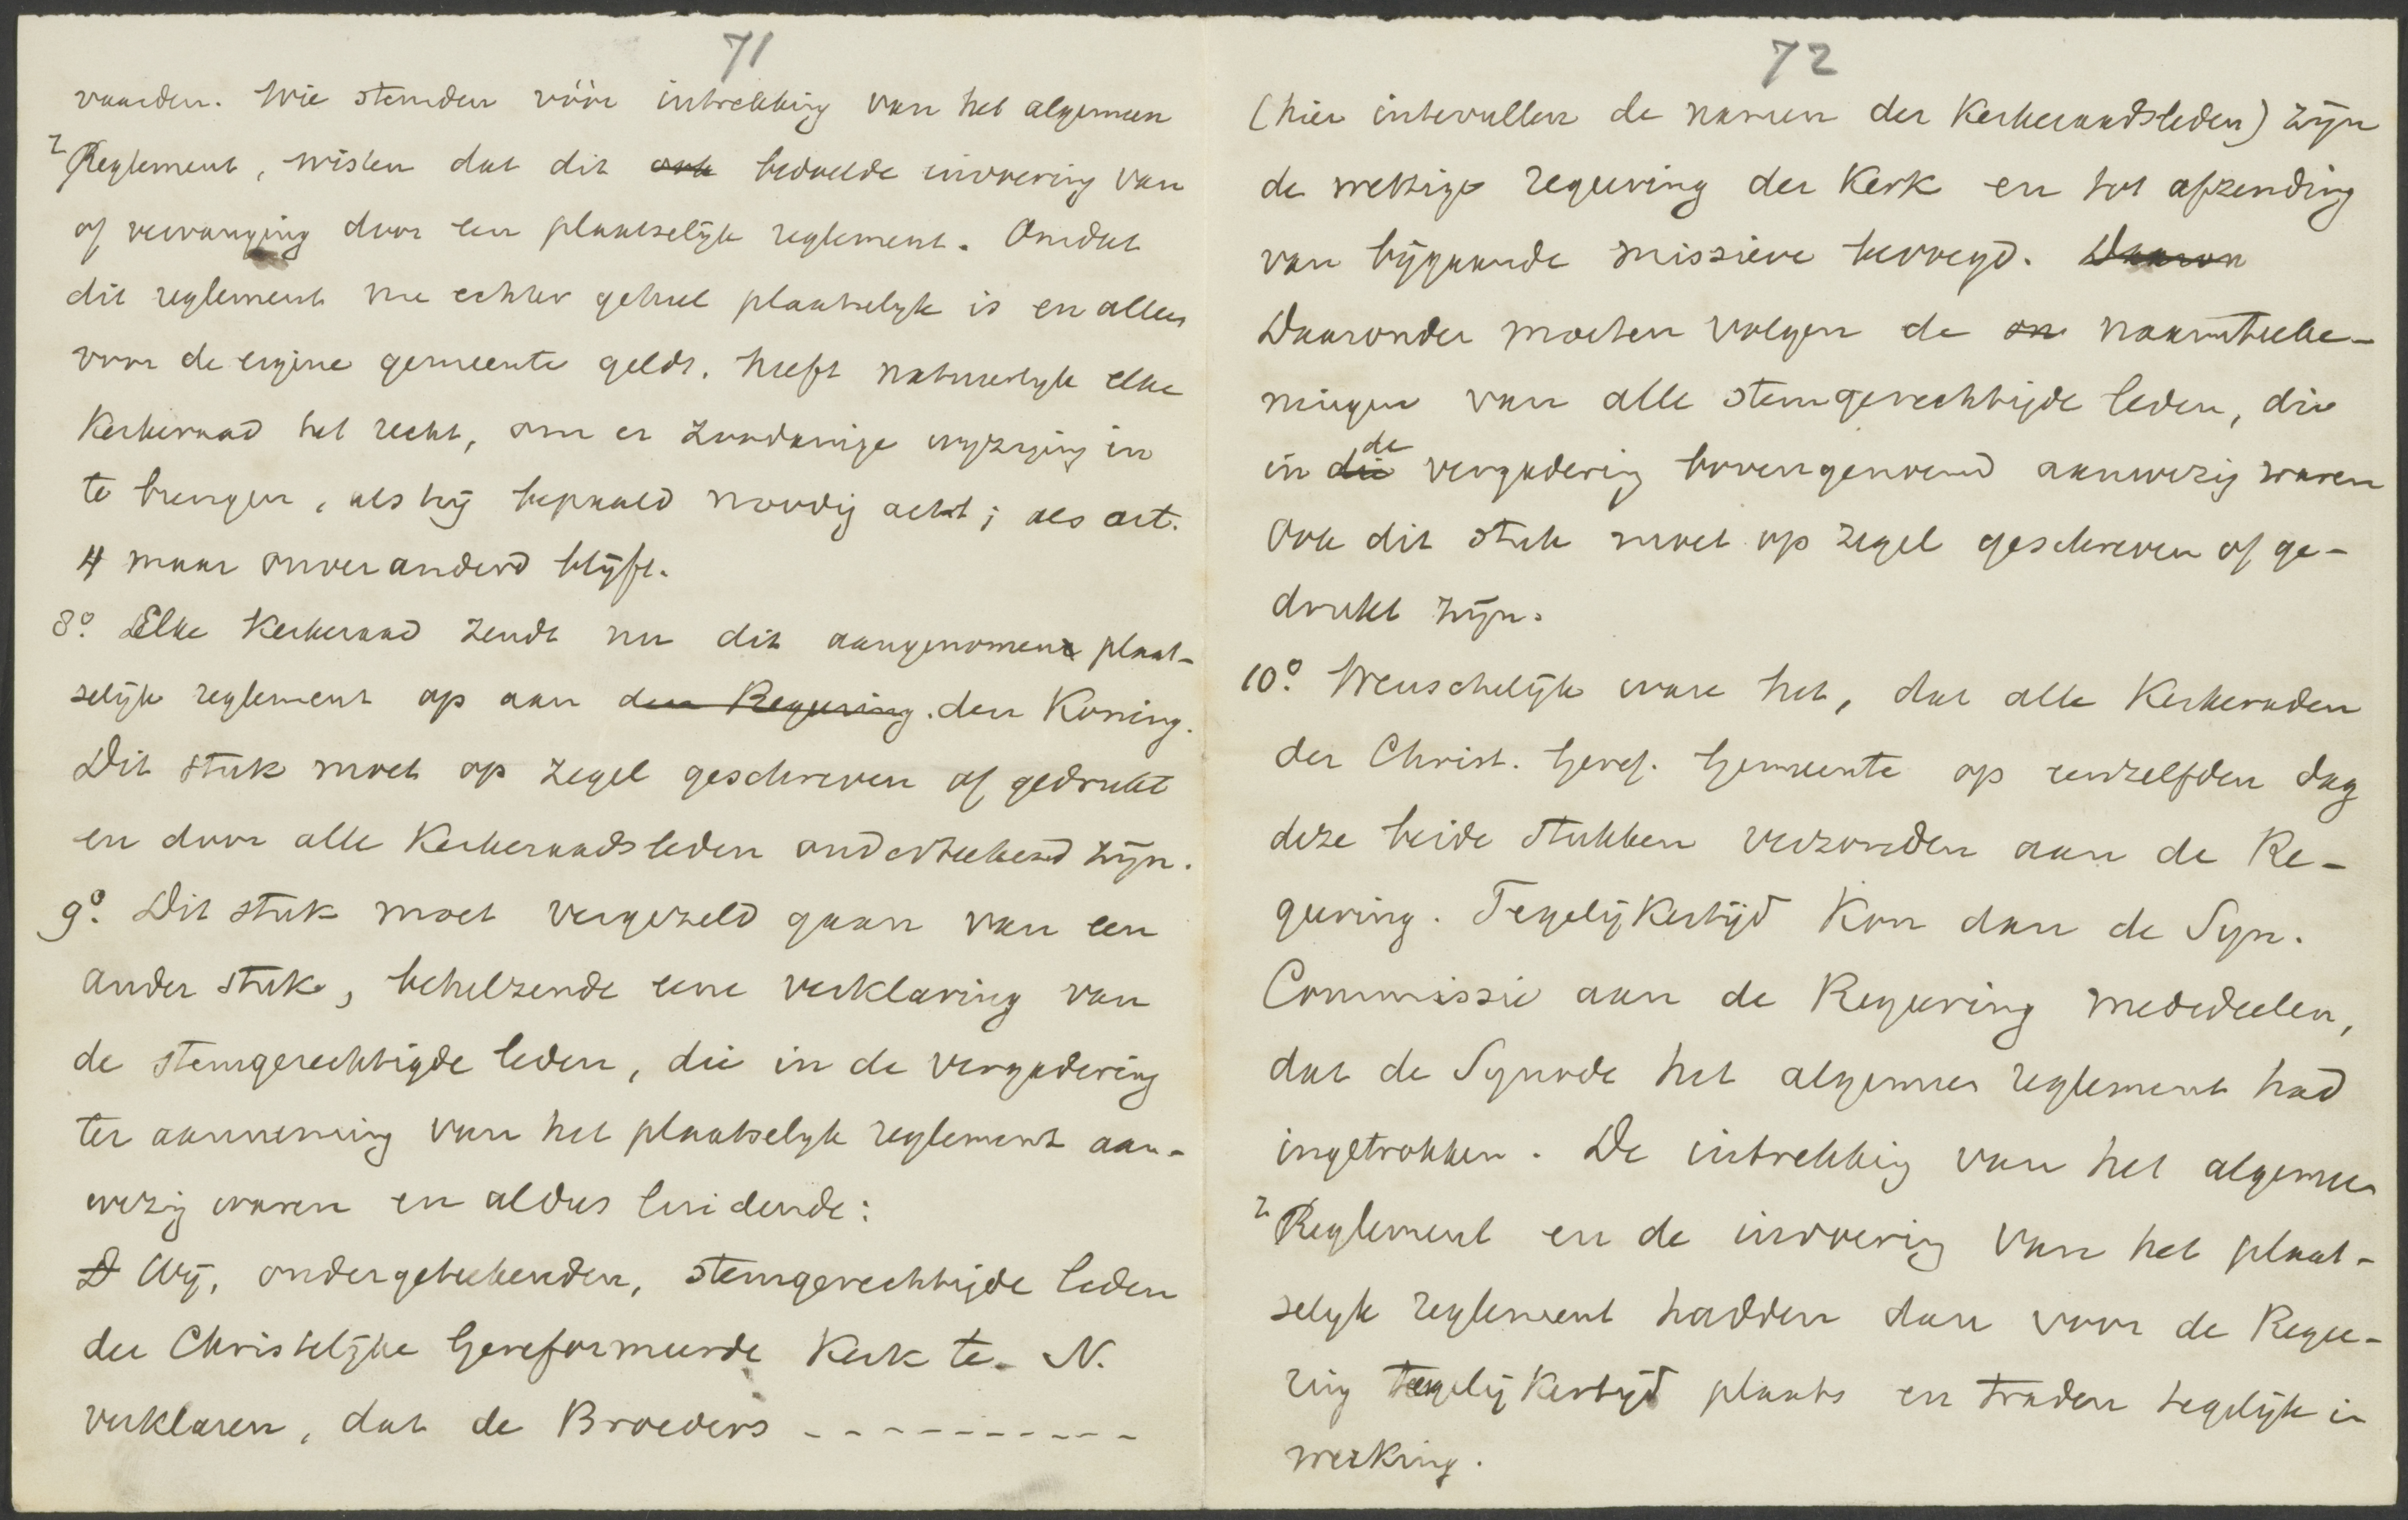 71
vaarden. Wie stemden vóór intrekking van het algemeen
Reglement, wisten dat dit ook bedoelde invoering van
of vervanging door een plaatselijk reglement. Omdat
dit reglement nu echter geheel plaatselyk is en alleen
voor de eigene gemeente geldt, heeft natuurlyk elke
Kerkeraad het recht, om er zoodanige wyziging in
te brengen, als hij bepaald noodig acht; als art.
4 maar onveranderd blijft.
8º. Elke Kerkeraad zendt nu dit aangenomen plaat-
selijk reglement op aan den Regeering. den Koning.
Dit stuk moet op zegel geschreven of gedrukt
en door alle Kerkeraadsleden onderteekend zijn.
9º. Dit stuk moet vergezeld gaan van een
ander stuk, behelzende eene verklaring van
de stemgerechtigde leden, die in de vergadering
ter aanneming van het plaatselyk reglement aan-
wezig waren en aldus luidende:
D Wij, ondergeteekenden, stemgerechtigde leden
der Christelijke Gereformeerde Kerk te N.
verklaren, dat de Broeders - - - - - - - - - -
72
(hier intevullen de namen der Kerkeraadsleden) zijn
de wettige regeering der Kerk en tot afzending
van bijgaande missieve bevoegd. Daaron
Daaronder moeten volgen de on naamteeke-
ningen van alle stemgerechtigde leden, die
in die de vergadering bovengenoemd aanwezig waren
Ook dit stuk moet op zegel geschreven of ge-
drukt zijn.
10º. Wenschelijk ware het, dat alle Kerkeraden
der Christ. Geref. Gemeente op eenzelfden dag
deze beide stukken verzonden aan de Re-
geering. Tegelijkertijd kon dan de Syn.
Commissie aan de Regeering mededeelen,
dat de Synode het algemeen reglement had
ingetrokken. De intrekking van het algemeen
Reglement en de invoering van het plaat-
selyk reglement hadden dan voor de Regee-
ring tegelijkertijd plaats en traden tegelijk in
werking.